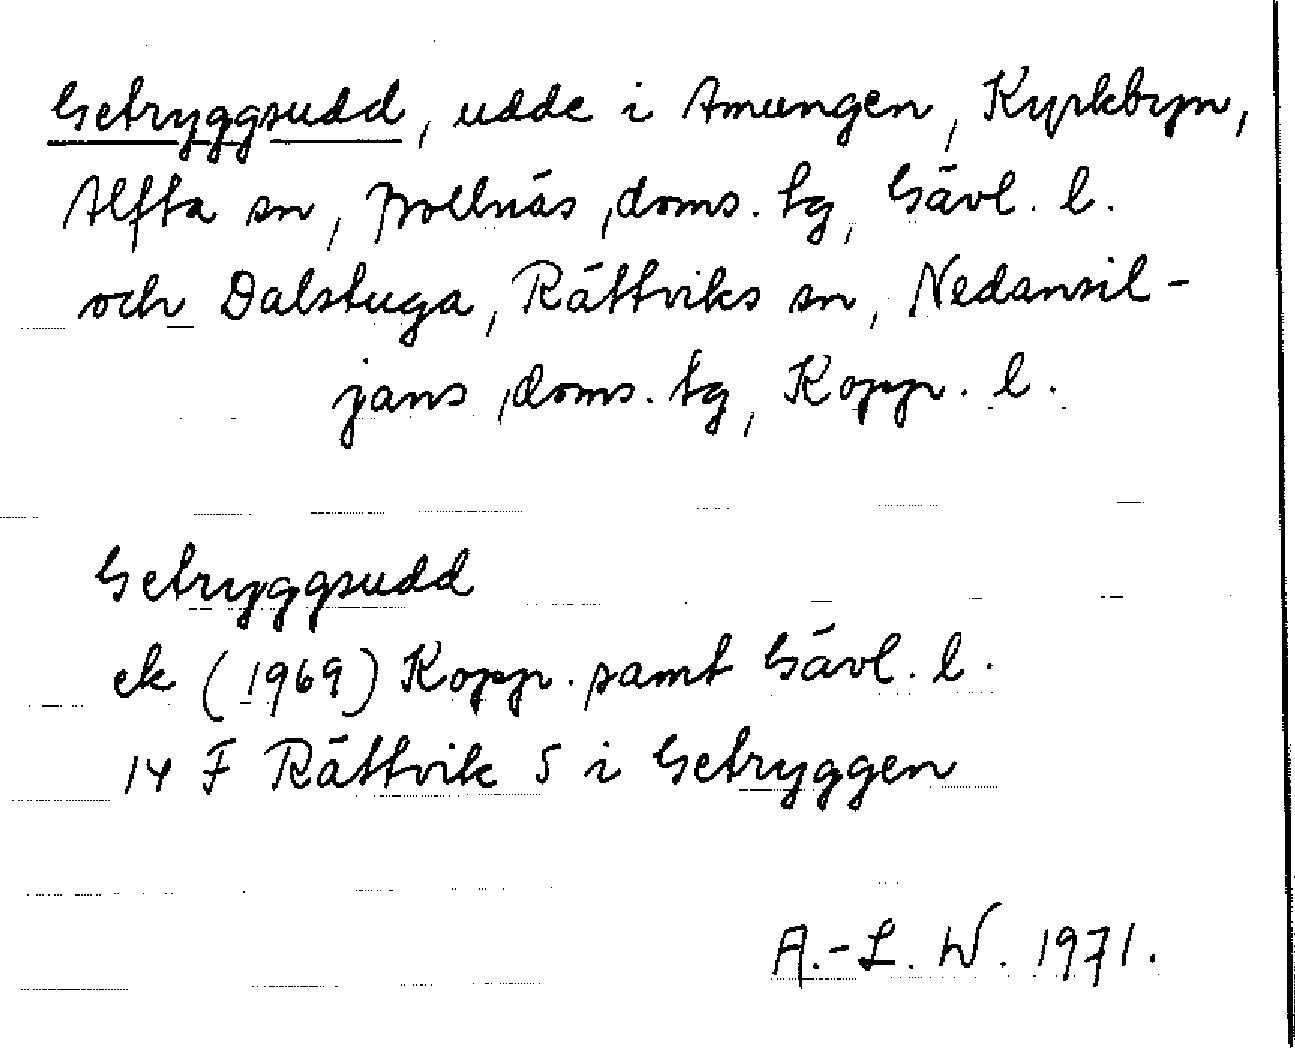 Getryggsudd, udde i Amungen, Kyrkbyn,
Alfta sn, Bollnäs doms. tg, Gävl. l.
och Dalstuga, Rättviks sn, Nedansil-
jans doms. tg, Kopp. l.
Getryggsudd
ek (1969) Kopp. samt Gävl. l.
14 F Rättvik 5 i Getryggen
A.-L. W. 1971.